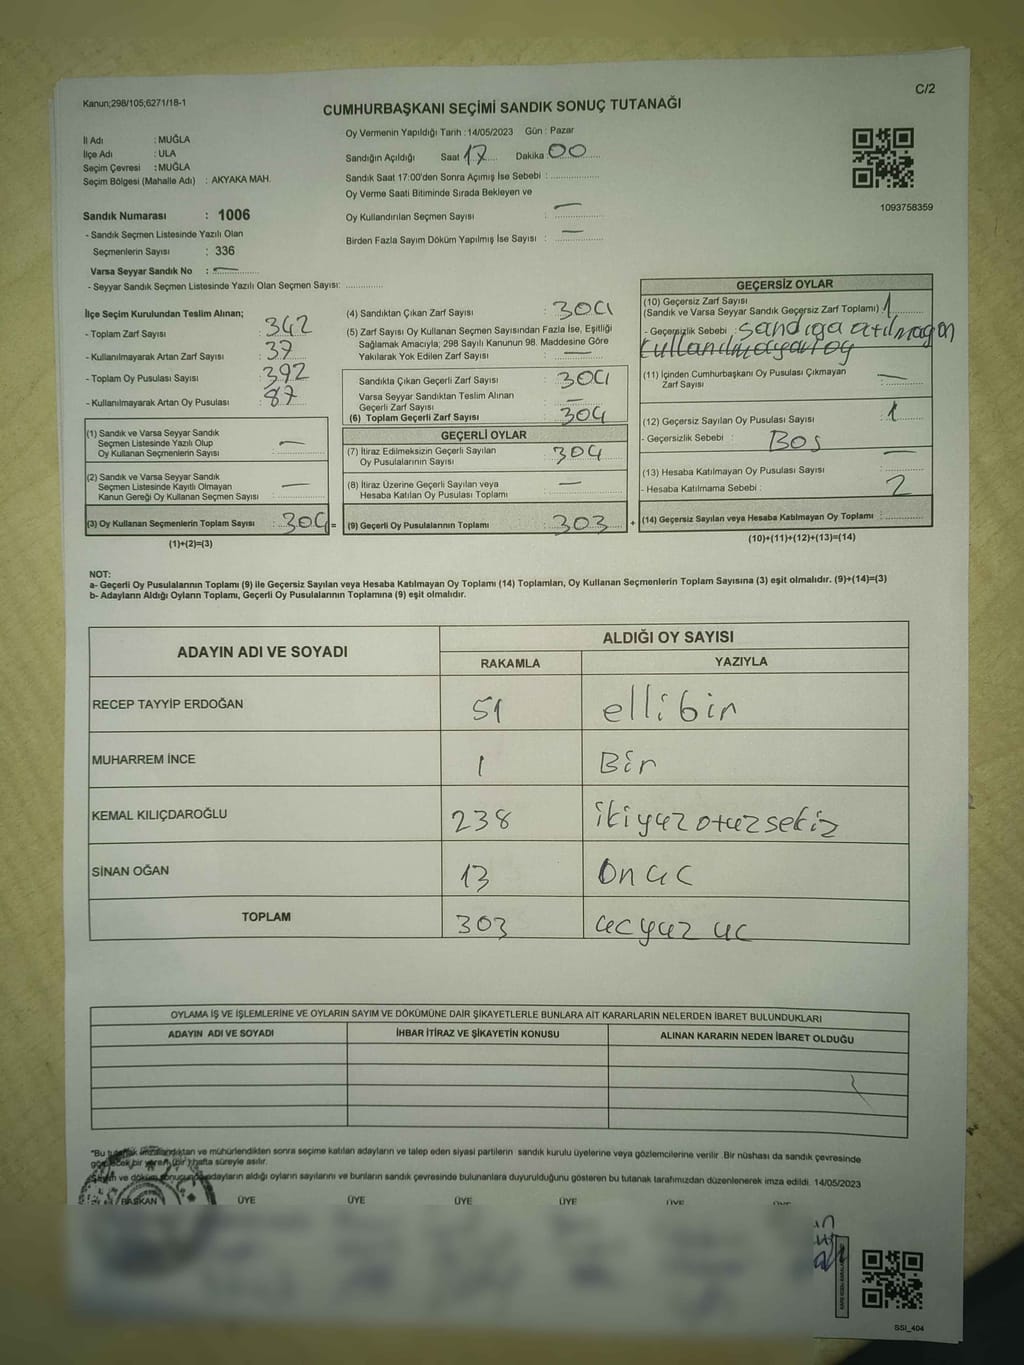 C/2
Kanun;298/105;6271/18-1
CUMHURBAŞKANI SEÇİMİ SANDIK SONUÇ TUTANAĞI
İl Adı : MUĞLA
İlçe Adı : ULA
Seçim Çevresi : MUĞLA
Seçim Bölgesi (Mahalle Adı) : AKYAKA MAH.
Oy Vermenin Yapıldığı Tarih : 14/05/2023 Gün : Pazar
Sandığın Açıldığı Saat 17 Dakika 00
Sandık Saat 17:00'den Sonra Açımış İse Sebebi :
Oy Verme Saati Bitiminde Sırada Bekleyen ve
Oy Kullandırılan Seçmen Sayısı : —
Birden Fazla Sayım Döküm Yapılmış İse Sayısı : —
1093758359
Sandık Numarası : 1006
- Sandık Seçmen Listesinde Yazılı Olan
Seçmenlerin Sayısı : 336
Varsa Seyyar Sandık No : —
- Seyyar Sandık Seçmen Listesinde Yazılı Olan Seçmen Sayısı:
İlçe Seçim Kurulundan Teslim Alınan;
- Toplam Zarf Sayısı : 342
- Kullanılmayarak Artan Zarf Sayısı : 37
- Toplam Oy Pusulası Sayısı : 392
- Kullanılmayarak Artan Oy Pusulası : 87
(1) Sandık ve Varsa Seyyar Sandık
Seçmen Listesinde Yazılı Olup
Oy Kullanan Seçmenlerin Sayısı : —
(2) Sandık ve Varsa Seyyar Sandık
Seçmen Listesinde Kayıtlı Olmayan
Kanun Gereği Oy Kullanan Seçmen Sayısı : —
(3) Oy Kullanan Seçmenlerin Toplam Sayısı : 304 =
(1)+(2)=(3)
(4) Sandıktan Çıkan Zarf Sayısı : 304
(5) Zarf Sayısı Oy Kullanan Seçmen Sayısından Fazla İse, Eşitliği
Sağlamak Amacıyla; 298 Sayılı Kanunun 98. Maddesine Göre
Yakılarak Yok Edilen Zarf Sayısı : —
Sandıkta Çıkan Geçerli Zarf Sayısı : 304
Varsa Seyyar Sandıktan Teslim Alınan
Geçerli Zarf Sayısı : —
(6) Toplam Geçerli Zarf Sayısı : 304
GEÇERLİ OYLAR
(7) İtiraz Edilmeksizin Geçerli Sayılan
Oy Pusulalarının Sayısı : 304
(8) İtiraz Üzerine Geçerli Sayılan veya
Hesaba Katılan Oy Pusulası Toplamı : —
(9) Geçerli Oy Pusulalarının Toplamı : 303 +
GEÇERSİZ OYLAR
(10) Geçersiz Zarf Sayısı
(Sandık ve Varsa Seyyar Sandık Geçersiz Zarf Toplamı) 1
- Geçersizlik Sebebi : sandığa atılmagan
kullanılmayan oy
(11) İçinden Cumhurbaşkanı Oy Pusulası Çıkmayan
Zarf Sayısı : —
(12) Geçersiz Sayılan Oy Pusulası Sayısı : 1
- Geçersizlik Sebebi : Boş
(13) Hesaba Katılmayan Oy Pusulası Sayısı : —
- Hesaba Katılmama Sebebi :
(14) Geçersiz Sayılan veya Hesaba Katılmayan Oy Toplamı : 2
(10)+(11)+(12)+(13)=(14)
NOT:
a- Geçerli Oy Pusulalarının Toplamı (9) ile Geçersiz Sayılan veya Hesaba Katılmayan Oy Toplamı (14) Toplamları, Oy Kullanan Seçmenlerin Toplam Sayısına (3) eşit olmalıdır. (9)+(14)=(3)
b- Adayların Aldığı Oyların Toplamı, Geçerli Oy Pusulalarının Toplamına (9) eşit olmalıdır.
ADAYIN ADI VE SOYADI
ALDIĞI OY SAYISI
RAKAMLA YAZIYLA
RECEP TAYYİP ERDOĞAN 51 ellibir
MUHARREM İNCE 1 Bir
KEMAL KILIÇDAROĞLU 238 ikiyuz otuzsekiz
SİNAN OĞAN 13 On uc
TOPLAM 303 ucyuz uc
OYLAMA İŞ VE İŞLEMLERİNE VE OYLARIN SAYIM VE DÖKÜMÜNE DAİR ŞİKAYETLERLE BUNLARA AİT KARARLARIN NELERDEN İBARET BULUNDUKLARI
ADAYIN ADI VE SOYADI İHBAR İTİRAZ VE ŞİKAYETİN KONUSU ALINAN KARARIN NEDEN İBARET OLDUĞU
"Bu tutanak imzalandıktan ve mühürlendikten sonra seçime katılan adayların ve talep eden siyasi partilerin sandık kurulu üyelerine veya gözlemcilerine verilir. Bir nüshası da sandık çevresinde
görülecek bir yere (bir) hafta süreyle asılır.
Sayım ve döküm sonucunda adayların aldığı oyların sayılarını ve bunların sandık çevresinde bulunanlara duyurulduğunu gösteren bu tutanak tarafımızdan düzenlenerek imza edildi. 14/05/2023
BAŞKAN ÜYE ÜYE ÜYE ÜYE ÜYE
SSİ_404